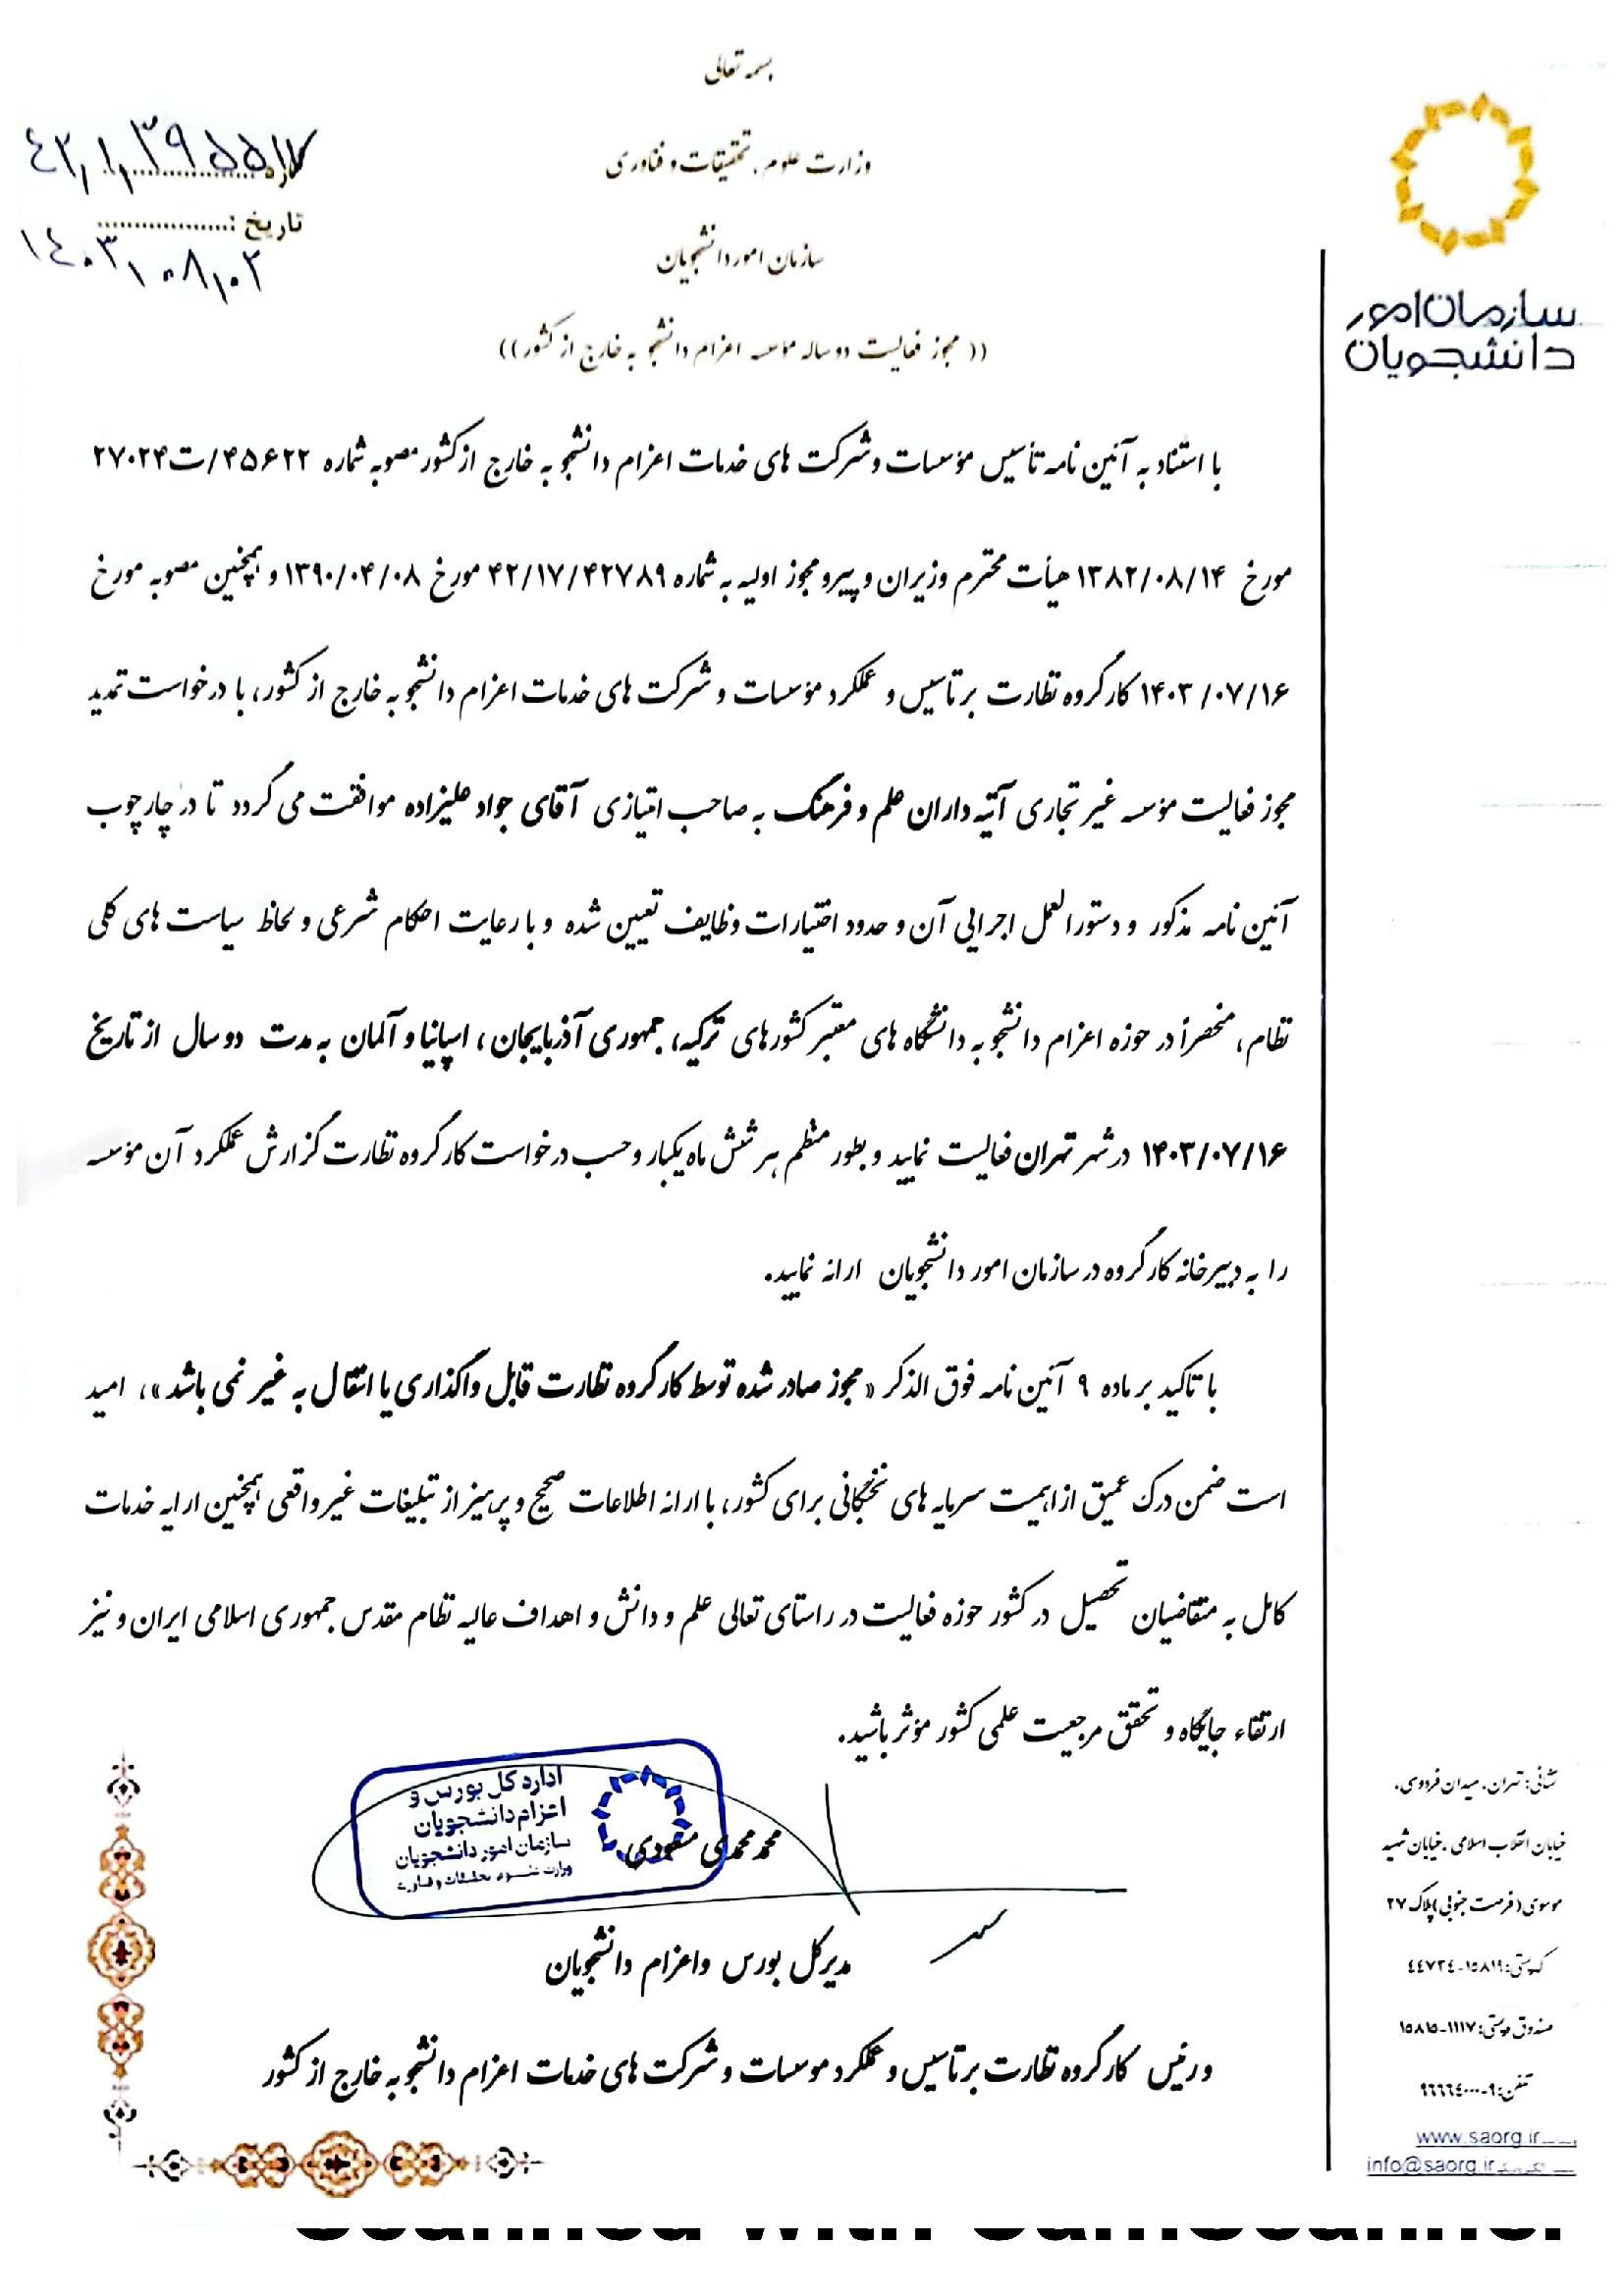 بسمه تعالی
وزارت علوم، تحقیقات و فناوری
سازمان امور دانشجویان
تاریخ :
۱۴۰۳/۰۸/۰۲
سازمان امور
دانشجویان
(( مجوز فعالیت دو ساله مؤسسه اعزام دانشجو به خارج از کشور))
با استناد به آئین نامه تأسیس مؤسسات و شرکت های خدمات اعزام دانشجو به خارج از کشور مصوبه شماره ۴۵۶۲۲/ت۲۷۰۲۴
مورخ ۱۳۸۲/۰۸/۱۴ هیأت محترم وزیران و پیرو مجوز اولیه به شماره ۴۲/۱۷/۴۲۷۸۹ مورخ ۱۳۹۰/۰۴/۰۸ و همچنین مصوبه مورخ
۱۴۰۳/۰۷/۱۶ کارگروه نظارت بر تاسیس و عملکرد مؤسسات و شرکت های خدمات اعزام دانشجو به خارج از کشور، با درخواست تمدید
مجوز فعالیت مؤسسه غیر تجاری آتیه داران علم و فرهنگ به صاحب امتیازی آقای جواد علیزاده موافقت می گردد تا در چارچوب
آئین نامه مذکور و دستورالعمل اجرایی آن و حدود اختیارات وظایف تعیین شده و با رعایت احکام شرعی و لحاظ سیاست های کلی
نظام، منحصراً در حوزه اعزام دانشجو به دانشگاه های معتبر کشورهای ترکیه، جمهوری آذربایجان، اسپانیا و آلمان به مدت دو سال از تاریخ
۱۴۰۳/۰۷/۱۶ در شهر تهران فعالیت نمایید و بطور منظم هر شش ماه یکبار و حسب درخواست کارگروه نظارت گزارش عملکرد آن مؤسسه
را به دبیرخانه کارگروه در سازمان امور دانشجویان ارائه نمایید.
با تاکید بر ماده ۹ آئین نامه فوق الذکر «مجوز صادر شده توسط کارگروه نظارت قابل واگذاری یا انتقال به غیر نمی باشد»، امید
است ضمن درک عمیق از اهمیت سرمایه های نخبگانی برای کشور، با ارائه اطلاعات صحیح و پرهیز از تبلیغات غیر واقعی همچنین ارایه خدمات
کامل به متقاضیان تحصیل در کشور حوزه فعالیت در راستای تعالی علم و دانش و اهداف عالیه نظام مقدس جمهوری اسلامی ایران و نیز
ارتقاء جایگاه و تحقق مرجعیت علمی کشور مؤثر باشید.
اداره کل بورس و
اعزام دانشجویان
سازمان امور دانشجویان
وزارت علوم، تحقیقات و فناوری
محمد محمدی مسعودی
مدیرکل بورس و اعزام دانشجویان
و رئیس کارگروه نظارت بر تاسیس و عملکرد موسسات و شرکت های خدمات اعزام دانشجو به خارج از کشور
نشانی: تهران، میدان فردوسی،
خیابان انقلاب اسلامی، خیابان شهید
موسوی (فرصت جنوبی) پلاک ۲۷
کدپستی: ۱۵۸۱۹-۴۴۷۳۴
صندوق پستی: ۱۱۱۷-۱۵۸۱۵
تلفن: ۹-۹۶۶۶۴۰۰۰
www.saorg.ir
info@saorg.ir
Scanned with CamScanner